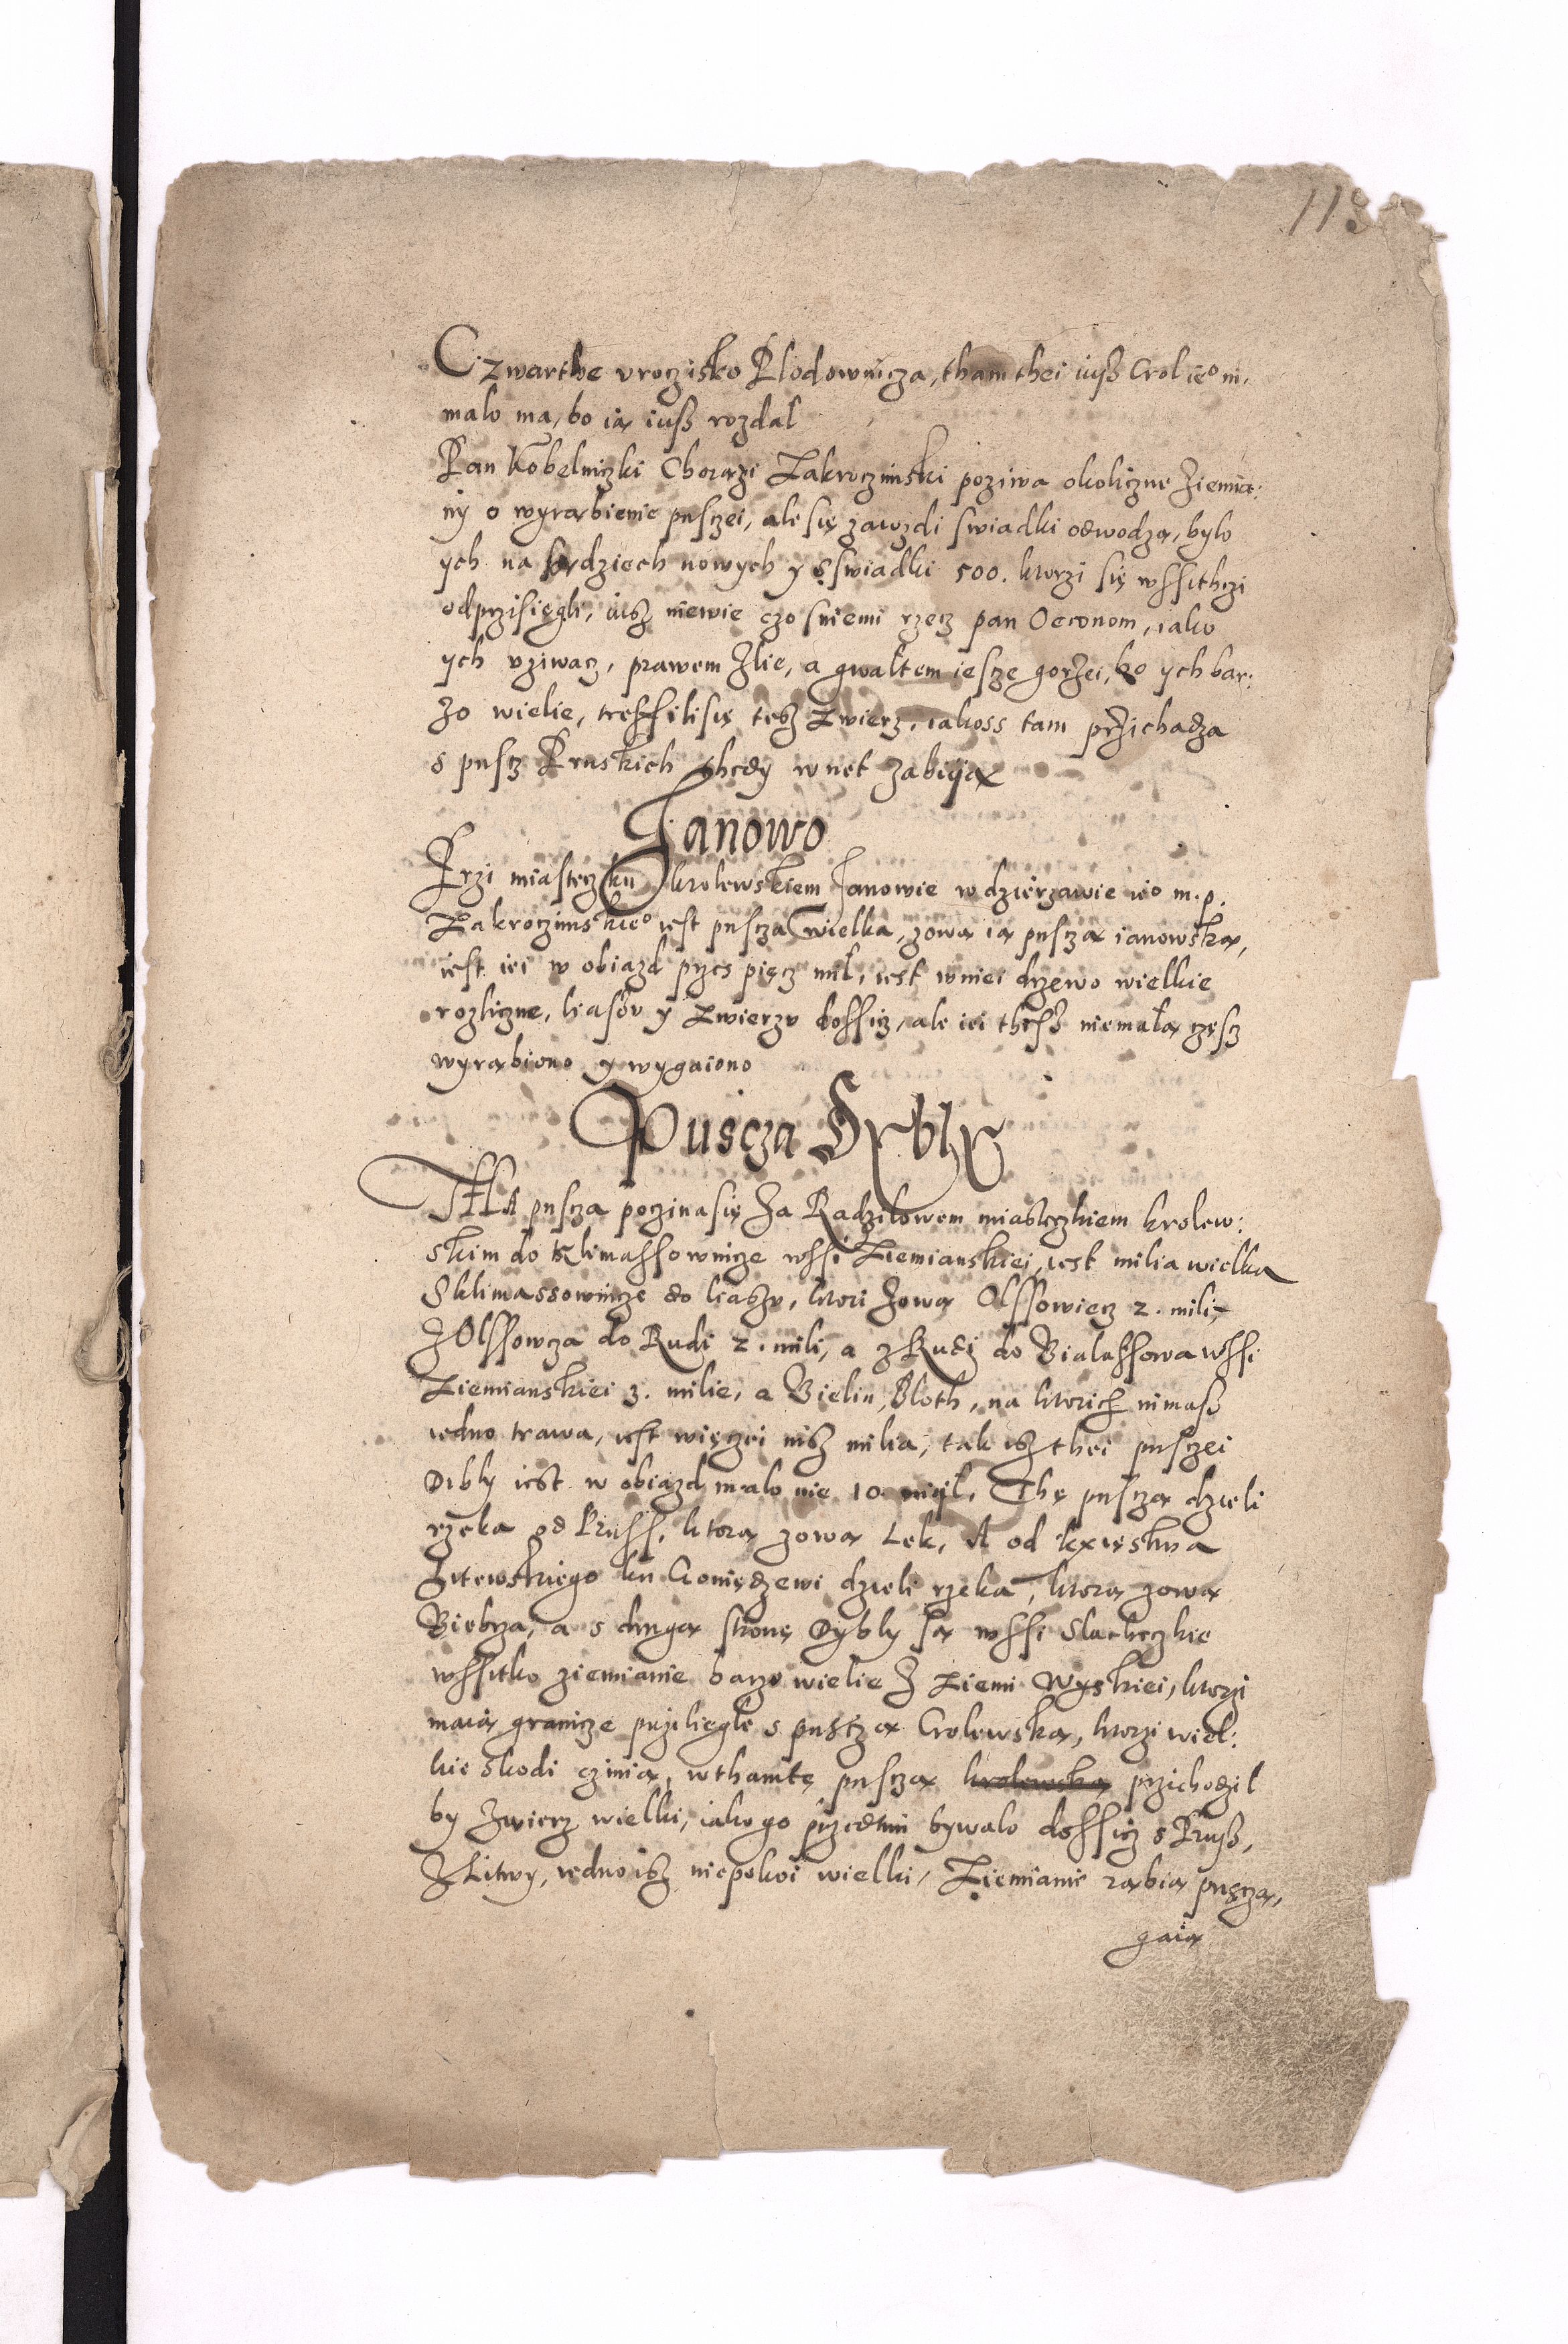 113
Czwarthe vroczisko Plodownicza, tham thei iusz Crol ieo m.
malo ma, bo ia̧ iusz rozdal
Pan Kobelniczki Chora̧zi Zakroczimski poziwa okoliczne Ziemia:
ny o wyra̧bienie pusczei, ale się zawzdi swiadki odwodza̧, bylo
ych na sa̧dziech nowych y s swiadki 500. ktorzi się wssithczi
odprzisięgli, iusz niewie czo sniemi rzecz pan Oeconom, iako
ych vziwacz, prawem zlie, a gwaltem iescze gorzei, bo ych bar:
zo wielie, treffilisię tesz zwierz, iakoss tam przichadza
s puscz Pruskich thedy wnet zabiia̧
Janowo
Przi miasteczku krolewskiem Janowie w dzierzawie ieo m. p.
Zakroczimskieo iest puscza wielka, zowa̧ ia̧ puscza̧ ianowska̧,
iest iei w obiazd przes pięcz mil, iest wniei drzewo wielkie
rozliczne, liasow y zwierzu dossicz, ale iei thesz niemala̧ częscz
wyra̧biono y wygaiono
Puscza Dybly
THA puscza poczina się za Radzilowem miasteczkiem krolew:
skim do Klimassownicze wssi Ziemianskiei, iest milia wielka
S klimassownicze do liaszu, ktori zowa̧ Olssowiecz 2. mili,
Z Olssowcza do Rudi 2. mili, a z Rudi do Bialassowa wssi
Ziemianskiei 3. milie, a Bielin, Bloth, na ktorich nimasz
iedno trawa, iest więczei nisz milia, tak isz thei pusczei
Dibly iest w obiazd malo nie 10 mijl. Thę puscza̧ dzieli
rzeka od Pruss, ktora̧ zowa̧ Lek, A od kxięstwa
Litewskiego ku Gonia̧dzewi dzieli rzeka, ktora̧ zowa̧
Biebrza, a s druga̧ stronę Dybly sa̧ wssi Slacheczkie
wssitko ziemianie barzo wielie z Ziemi Wyskiei, ktorzi
maia̧ granicze przilięgle s puscza̧ Crolewska̧, ktorzi wiel:
kie skodi czinia̧, w thamtę puscza̧ krolewska̧ przichodzil
by Zwierz wielki, iakogo przedtim bywalo dossicz s Prusz,
Z Litwy, iedno isz niepokoi wielki, Ziemianie ra̧bia̧ puscza̧,
gaia̧